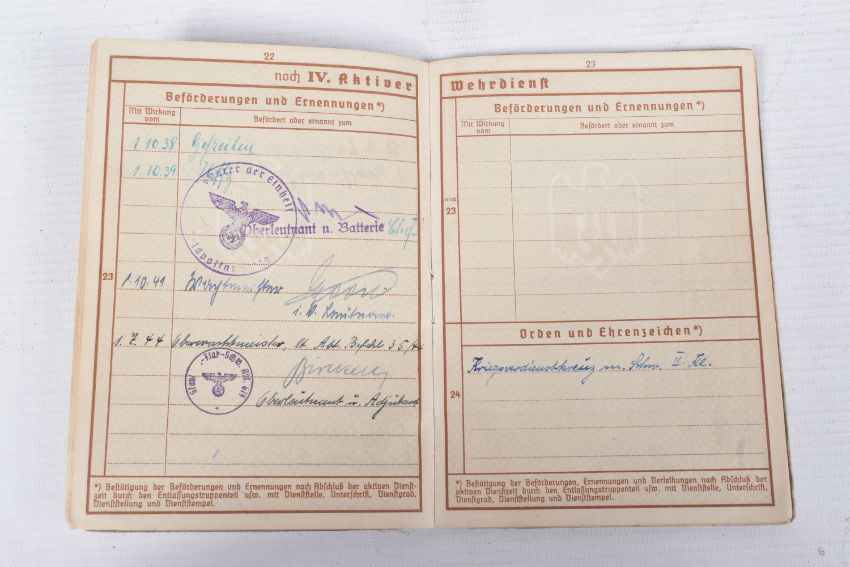 22
noch IV. Aktiver
Beförderungen und Ernennungen*)
Mit Wirkung
vom
Befördert oder ernannt zum
1.10.38 Gefreiten
1.10.39 Uffz
der Einheit
Oberleutnant u. Batterie Chef
23
1.10.41 Wachtmeister
i.V. Leutnant
1.7.44 Oberwachtmeister, lt. Abt. Befehl 35/44
Oberleutnant u. Adjutant
*) Bestätigung der Beförderungen und Ernennungen nach Abschluß der aktiven Dienst-
zeit durch den Entlassungstruppenteil usw. mit Dienststelle, Unterschrift, Dienstgrad,
Dienststellung und Dienststempel.
23
Wehrdienst
Beförderungen und Ernennungen*)
Mit Wirkung
vom
Befördert oder ernannt zum
noch
23
Orden und Ehrenzeichen*)
Kriegsverdienstkreuz m. Schw. II. Kl.
24
*) Bestätigung der Beförderungen, Ernennungen und Verleihungen nach Abschluß der
aktiven Dienstzeit durch den Entlassungstruppenteil usw. mit Dienststelle, Unterschrift,
Dienstgrad, Dienststellung und Dienststempel.